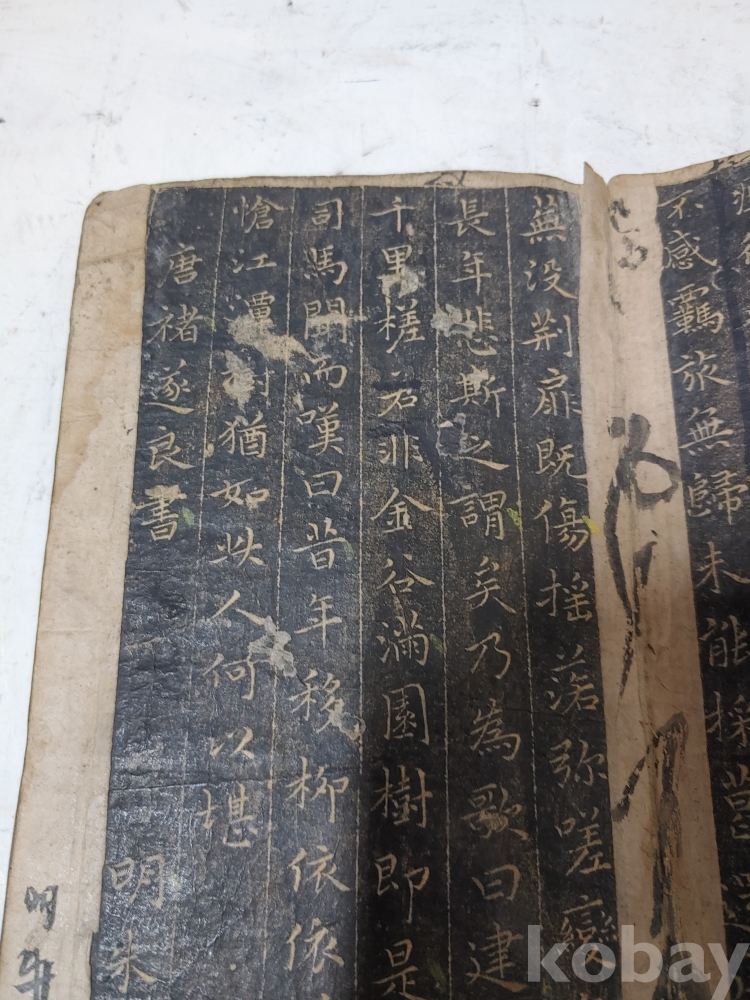 不感羈旅無歸未能採
蕪没荆扉既傷搖落弥嗟變
長年悲斯之謂矣乃為歌曰建
千里槎若非金谷滿園樹即是
司馬聞而嘆曰昔年移柳依依
愴江潭樹猶如此人何以堪
唐褚遂良書
明朱
kobay